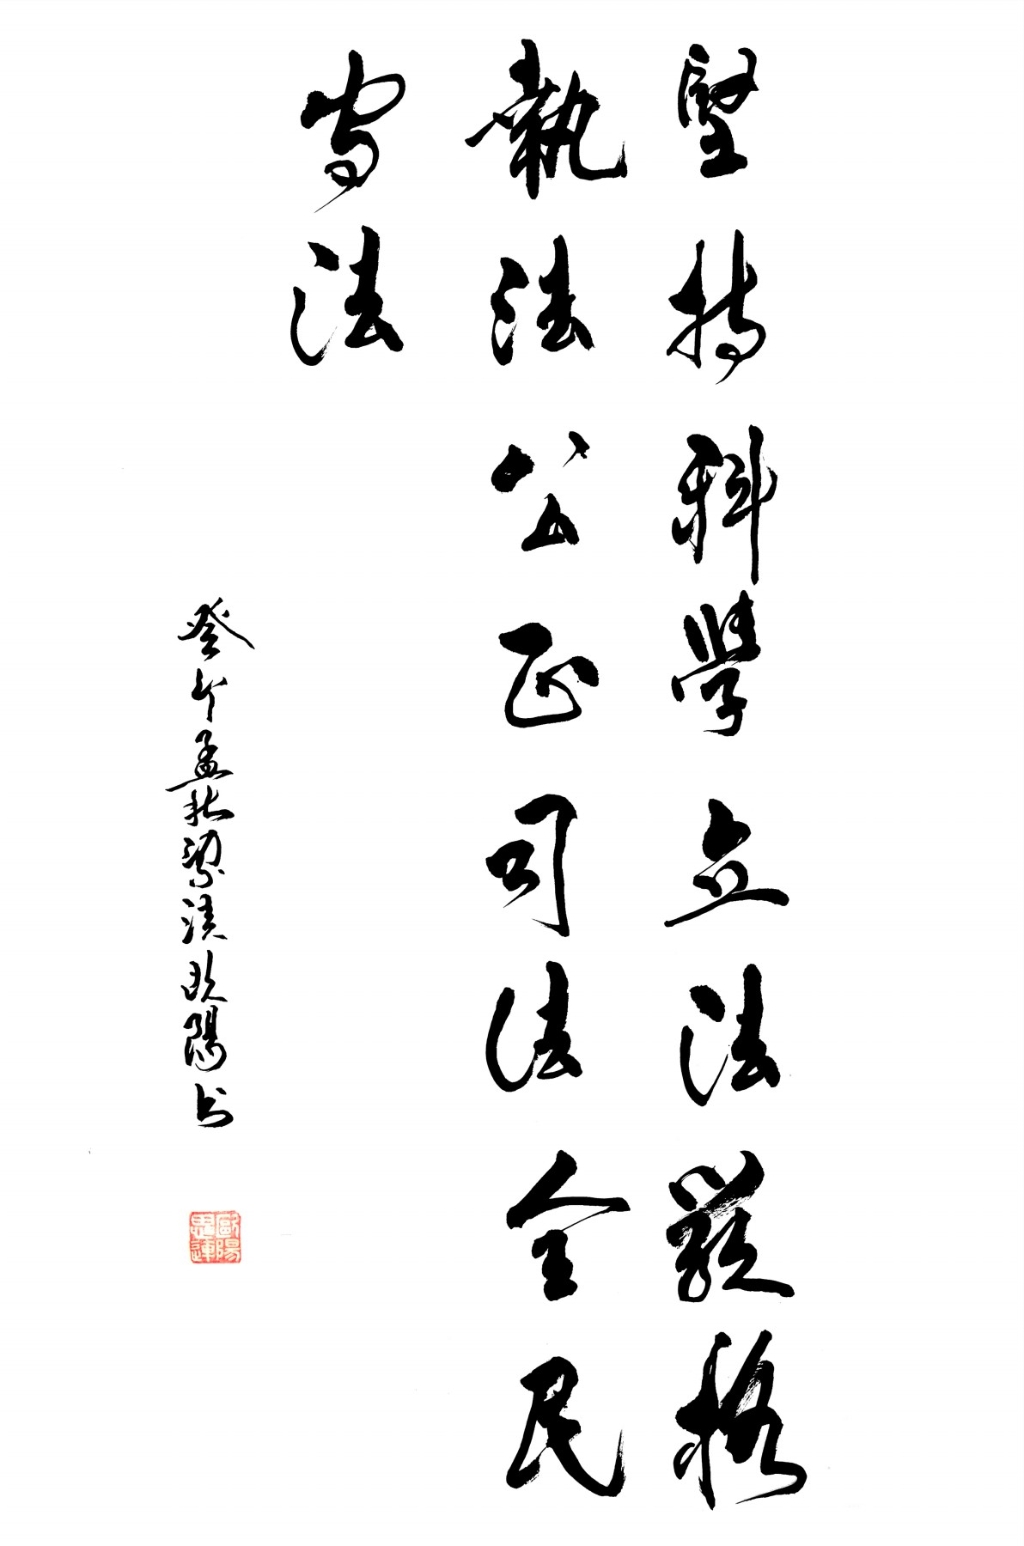 堅持科學立法嚴格
執法公正司法全民
守法
癸卯孟秋梁溪歐陽书
歐陽